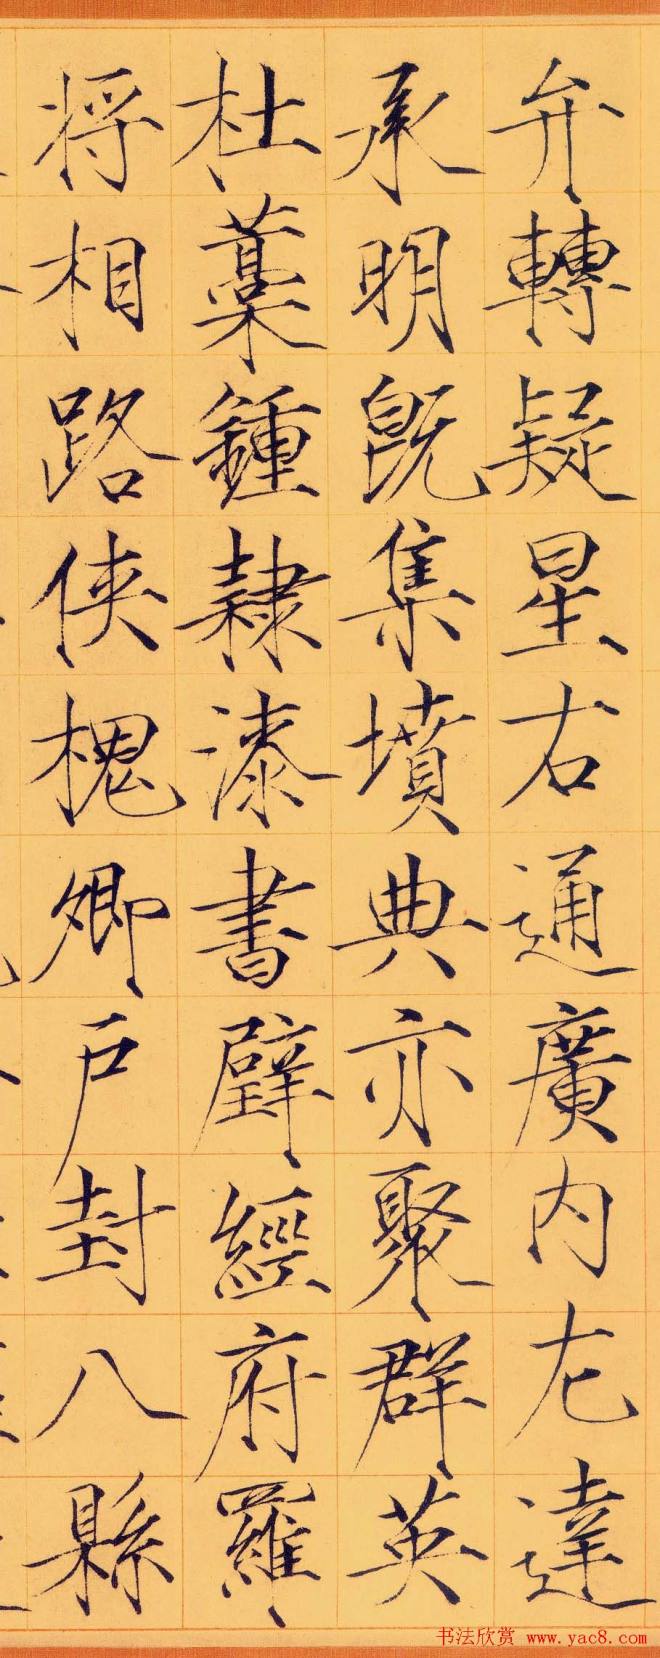 弁轉疑星右通廣内左達
承明既集墳典亦聚群英
杜藁鍾隸漆書壁經府羅
将相路侠槐卿户封八縣
书法欣赏 www.yac8.com